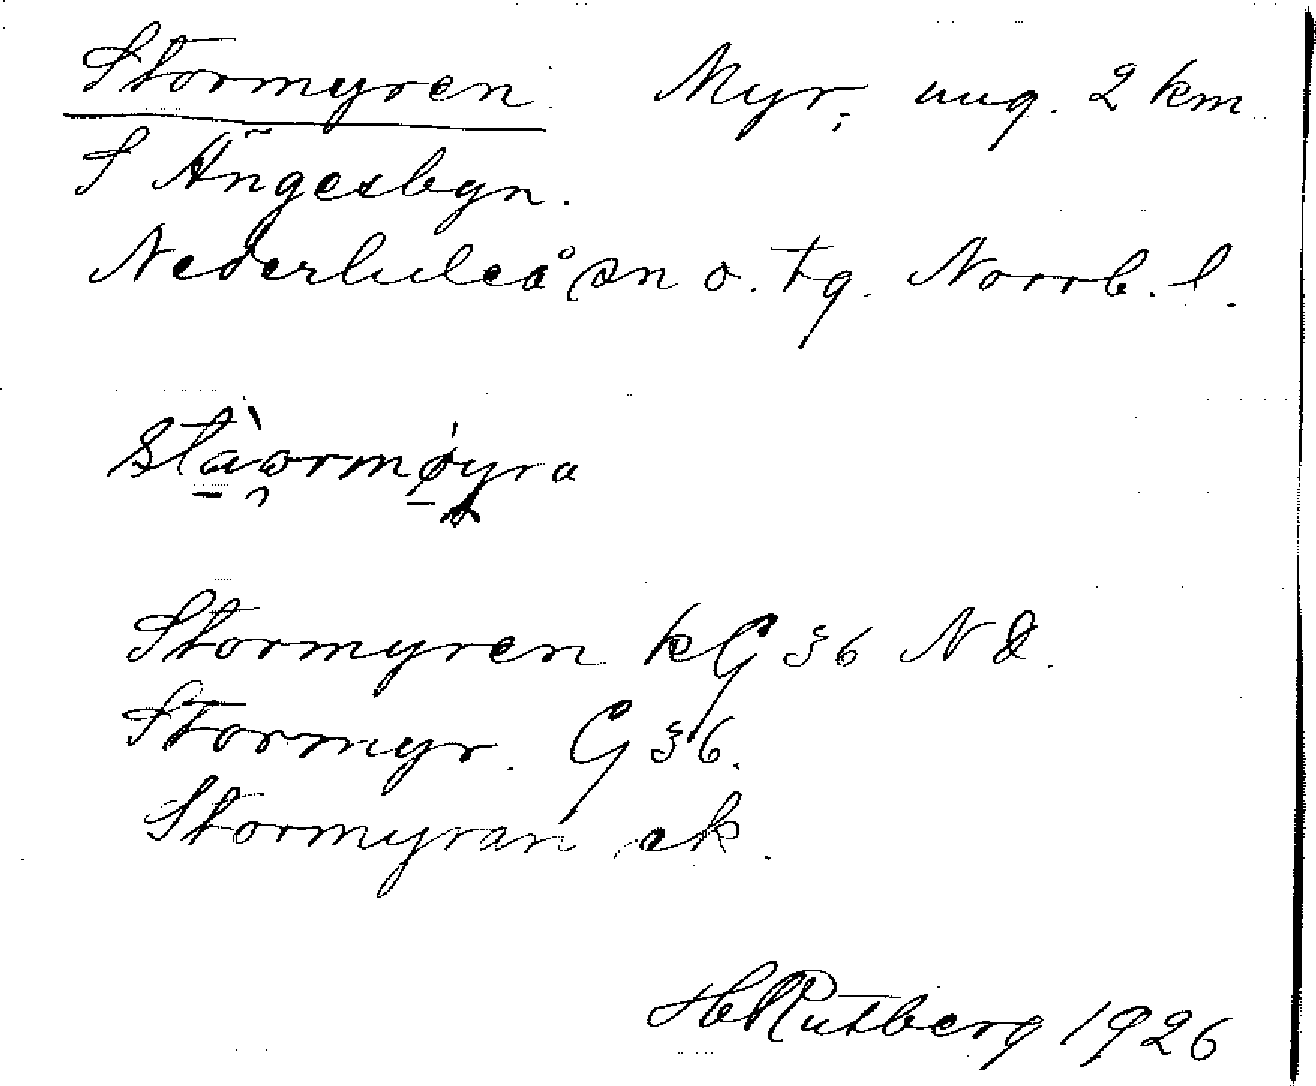 Stormyren. Myr, ung. 2 km
S Ängesbyn.
Nederluleå sn o. tg. Norrb. l.
stàormøyra
Stormyren kG §6 N D.
Stormyr. G §6.
Stormyran ek.
H Rutberg 1926